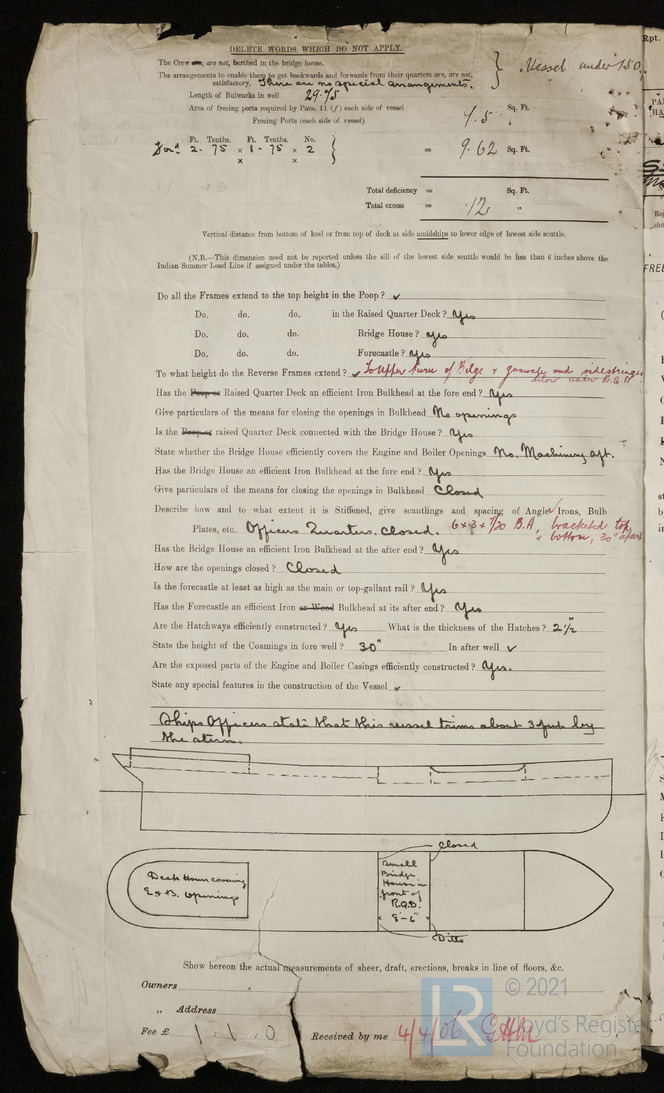 DELETE WORDS WHICH DO NOT APPLY.
The Crew are, are not, berthed in the bridge house.
Vessel under 150
The arrangements to enable them to get backwards and forwards from their quarters are, are not,
satisfactory. There are no special arrangements.
Length of Bulwarks in well 29.75
Area of freeing ports required by Para. 11 (f) each side of vessel 9.5 Sq. Ft.
Freeing Ports (each side of vessel)
Ft. Tenths. Ft. Tenths. No.
2. 75 × 1. 75 × 2 = 9.62 Sq. Ft.
× ×
Total deficiency = Sq. Ft.
Total excess = .12 "
Vertical distance from bottom of keel or from top of deck at side amidships to lower edge of lowest side scuttle.
(N.B.—This dimension need not be reported unless the sill of the lowest side scuttle would be less than 6 inches above the
Indian Summer Load Line if assigned under the tables.)
Do all the Frames extend to the top height in the Poop? ✓
Do. do. do. in the Raised Quarter Deck? Yes
Do. do. do. Bridge House? Yes
Do. do. do. Forecastle? Yes
To what height do the Reverse Frames extend? ✓ To upper turn of Bilge & gunwale and sidestringer
below R.Q.D
Has the Poop or Raised Quarter Deck an efficient Iron Bulkhead at the fore end? Yes
Give particulars of the means for closing the openings in Bulkhead No openings
Is the Poop or raised Quarter Deck connected with the Bridge House? Yes
State whether the Bridge House efficiently covers the Engine and Boiler Openings No, Machinery aft.
Has the Bridge House an efficient Iron Bulkhead at the fore end? Yes
Give particulars of the means for closing the openings in Bulkhead Closed
Describe how and to what extent it is Stiffened, give scantlings and spacing of Angle Irons, Bulb
Plates, etc. Officers Quarters. Closed. 6 × 3 × 7/20 B.A, bracketed top
& bottom, 30" apart
Has the Bridge House an efficient Iron Bulkhead at the after end? Yes
How are the openings closed? Closed
Is the forecastle at least as high as the main or top-gallant rail? Yes
Has the Forecastle an efficient Iron or Wood Bulkhead at its after end? Yes
Are the Hatchways efficiently constructed? Yes What is the thickness of the Hatches? 2½"
State the height of the Coamings in fore well? 30" In after well ✓
Are the exposed parts of the Engine and Boiler Casings efficiently constructed? Yes.
State any special features in the construction of the Vessel ✓
Ships Officers state that this vessel trims about 3 feet by
the stern.
Closed
Deck House covering
E & B. Openings
Small
Bridge
House in
front of
R.Q.D.
8'-6"
Ditto
Show hereon the actual measurements of sheer, draft, erections, breaks in line of floors, &c.
Owners
" Address
Fee £ 1 : 1 : 0 Received by me 4/4/06
LR © 2021
Lloyd's Register
Foundation
Rpt.
FREE